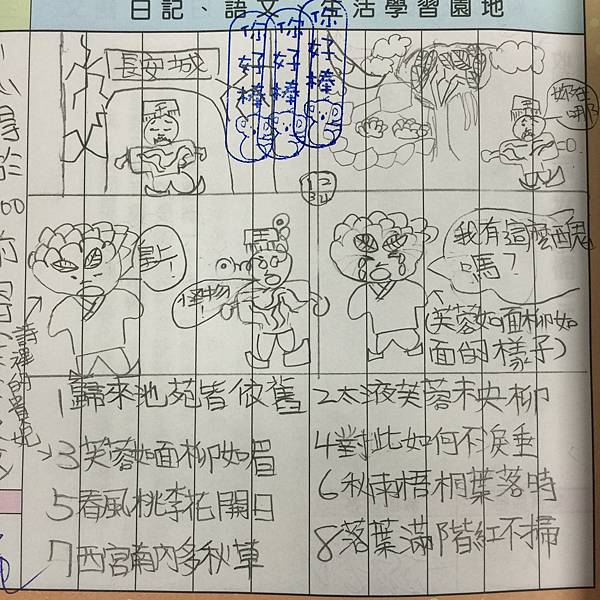 日記、語文、生活學習園地
長安城
你好棒
你好棒
你好棒
妳在哪
1 2
3 4
怪物!
我有這麼醜
嗎?
(芙蓉如面柳如
面的樣子)
1歸來池苑皆依舊
2太液芙蓉未央柳
3芙蓉如面柳如眉
4對此如何不淚垂
5春風桃李花開日
6秋雨梧桐葉落時
7西宮南內多秋草
8落葉滿階紅不掃